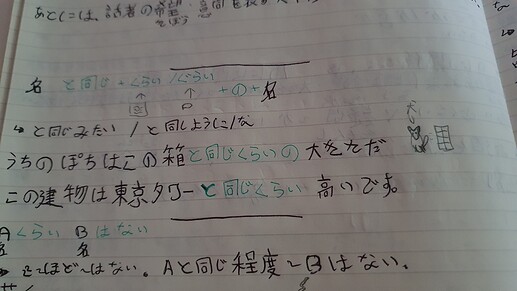 あとには、話者の希望、意向を表す
きぼう
名 と同じ・くらい/ぐらい
+の+名
↳ と同じみたい / と同じように/な
うちのぽちはこの箱と同じくらいの大きさだ
この建物は東京タワーと同じくらい高いです。
Aくらい Bはない
名 名
〜ほど〜はない。Aと同じ程度〜Bはない。